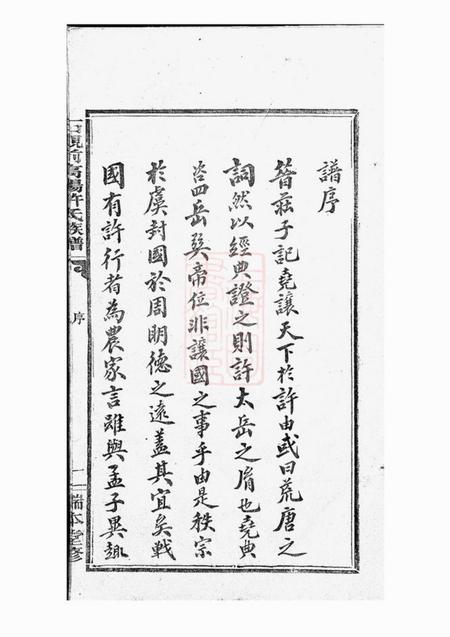 譜序
昔莊子記堯讓天下於許由或曰荒唐之
詞然以經典證之則許太岳之胤也堯典
咨四岳巽帝位非讓國之事乎由是秩宗
於虞封國於周明德之遠蓋其宜矣戰
國有許行者為農家言雖與孟子異趣
觀前高陽許氏族譜
序
一
端本堂修